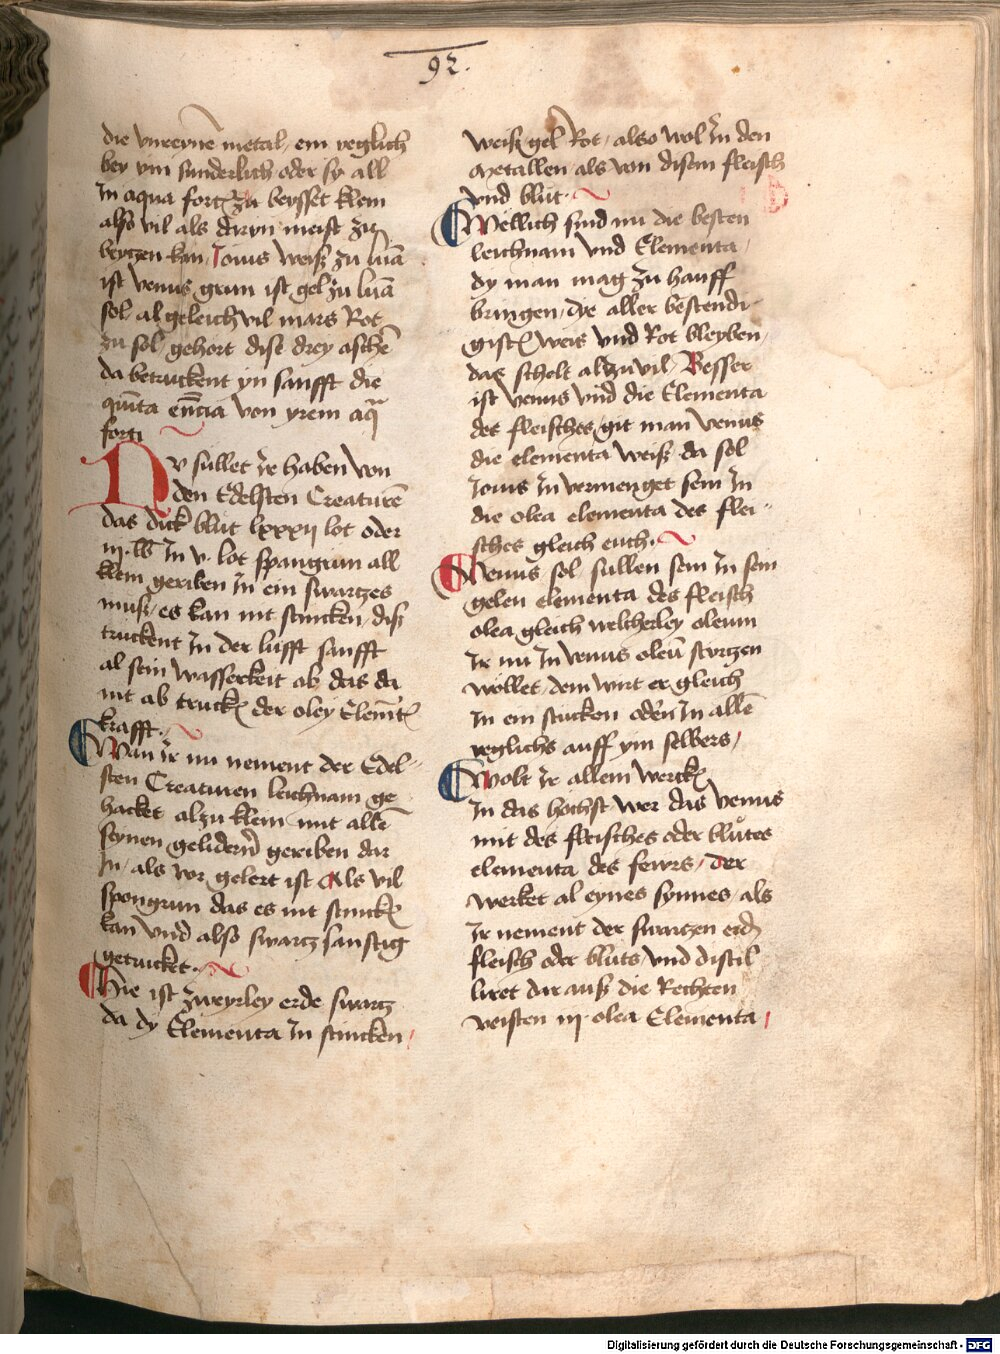 92.
die vnreyne metal, ein yeglich
bey ym sunderlich oder sy all
In aqua fort zu beysset klein
also vil als dryn meist zu
beyzen kan, Iouis weiß zu lūā
ist venus grun ist gel zu lūā
sol al geleich vil mars Rot
zu sol gehort dise drey aschē
da betruckent yn sanfft die
quīta eñcia von yrem aq̄
forti
DV sullet ir haben von
den Edelsten Creaturē
das dick blut lxxxij lot oder
iij. lb In v. lot spangrun all
klein geriben In ein swartzes
muß, es kan nit stincken, diß
truckent In der lufft sanfft
al sein wasserkeit ab das da
nit ab truckē der oley Elemēt
krafft.
Wan ir nu nement der Edel
sten Creaturen leichnam ge
hacket alzu klein mit allē
seynen gelidern geriben dar
In, als vor gelert ist Als vil
spongrun das es nit stinckē
kan vnd also swartz sanftig
getrucket.
Hie ist zweyrley erde swartz
da dy Elementa In stincken
weiß gel Rot, also wol In den
Metallen als von disem fleisch
vnd blut.
Wellich sind nu die besten
leichnam vnd Elementa
dy man mag zu hauff
bringen, dye aller bestendi
gistē weis vnd Rot bleyben,
das schelt alzu vil, Besser
ist venus vnd die Elementa
des fleisches, git man venus
die elementa weiß da sol
Iouis In vermenget sein In
die olea elementa des flei
sches gleich euch.
Venus sol sullen sein In sein
gelen elementa des fleisch
olea gleich welcherley oleum
Ir nu In venus oleū sturzen
wöllet, dem wirt er gleich
In ein stucken oder In allē
yeglichs auff ym selbers,
Wolt ir allein werckē
In das höchst wer das venus
mit des fleisches oder blůtes
elementa des fewrs, der
werket al eynes synnes, als
Ir nement der swartzen erd
fleisch oder bluts vnd distil
liret dar auß die Rechten
veisten iij. olea Elementa
Digitalisierung gefördert durch die Deutsche Forschungsgemeinschaft - DFG